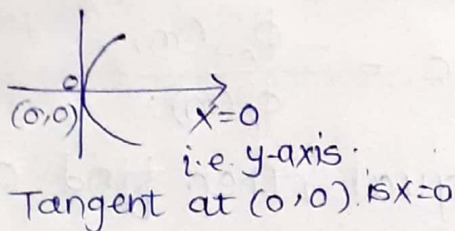 0
(0,0)
x=0
i.e. y-axis.
Tangent at (0,0). is x=0